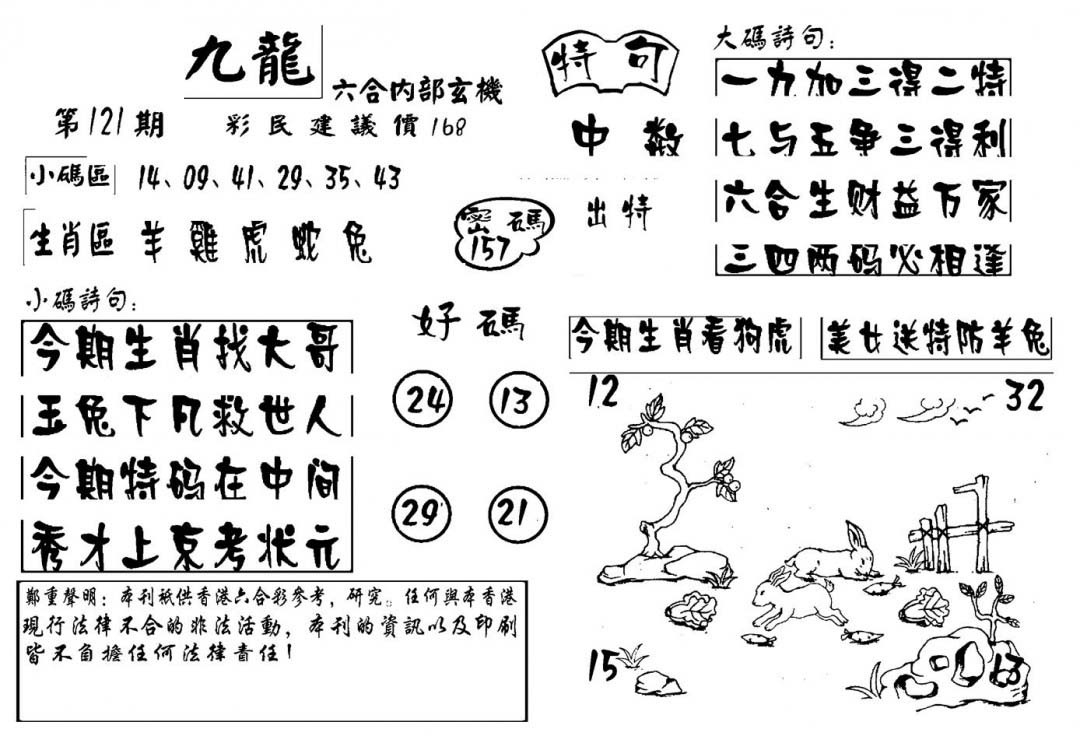 九龍
六合内部玄機
第121期
彩民建議價168
小碼區 14、09、41、29、35、43
生肖區 羊 雞 虎 蛇 兔
密碼
157
特句
中数
出特
大碼詩句：
一力加三得二特
七与五争三得利
六合生财益万家
三四两码必相逢
小碼詩句：
今期生肖找大哥
玉兔下凡救世人
今期特码在中间
秀才上京考状元
好碼
24 13
29 21
今期生肖看狗虎
美女送特防羊兔
12 32
15 13
鄭重聲明：本刊祇供香港六合彩參考，研究。任何與本香港
現行法律不合的非法活動，本刊的資訊以及印刷
皆不負擔任何法律責任！